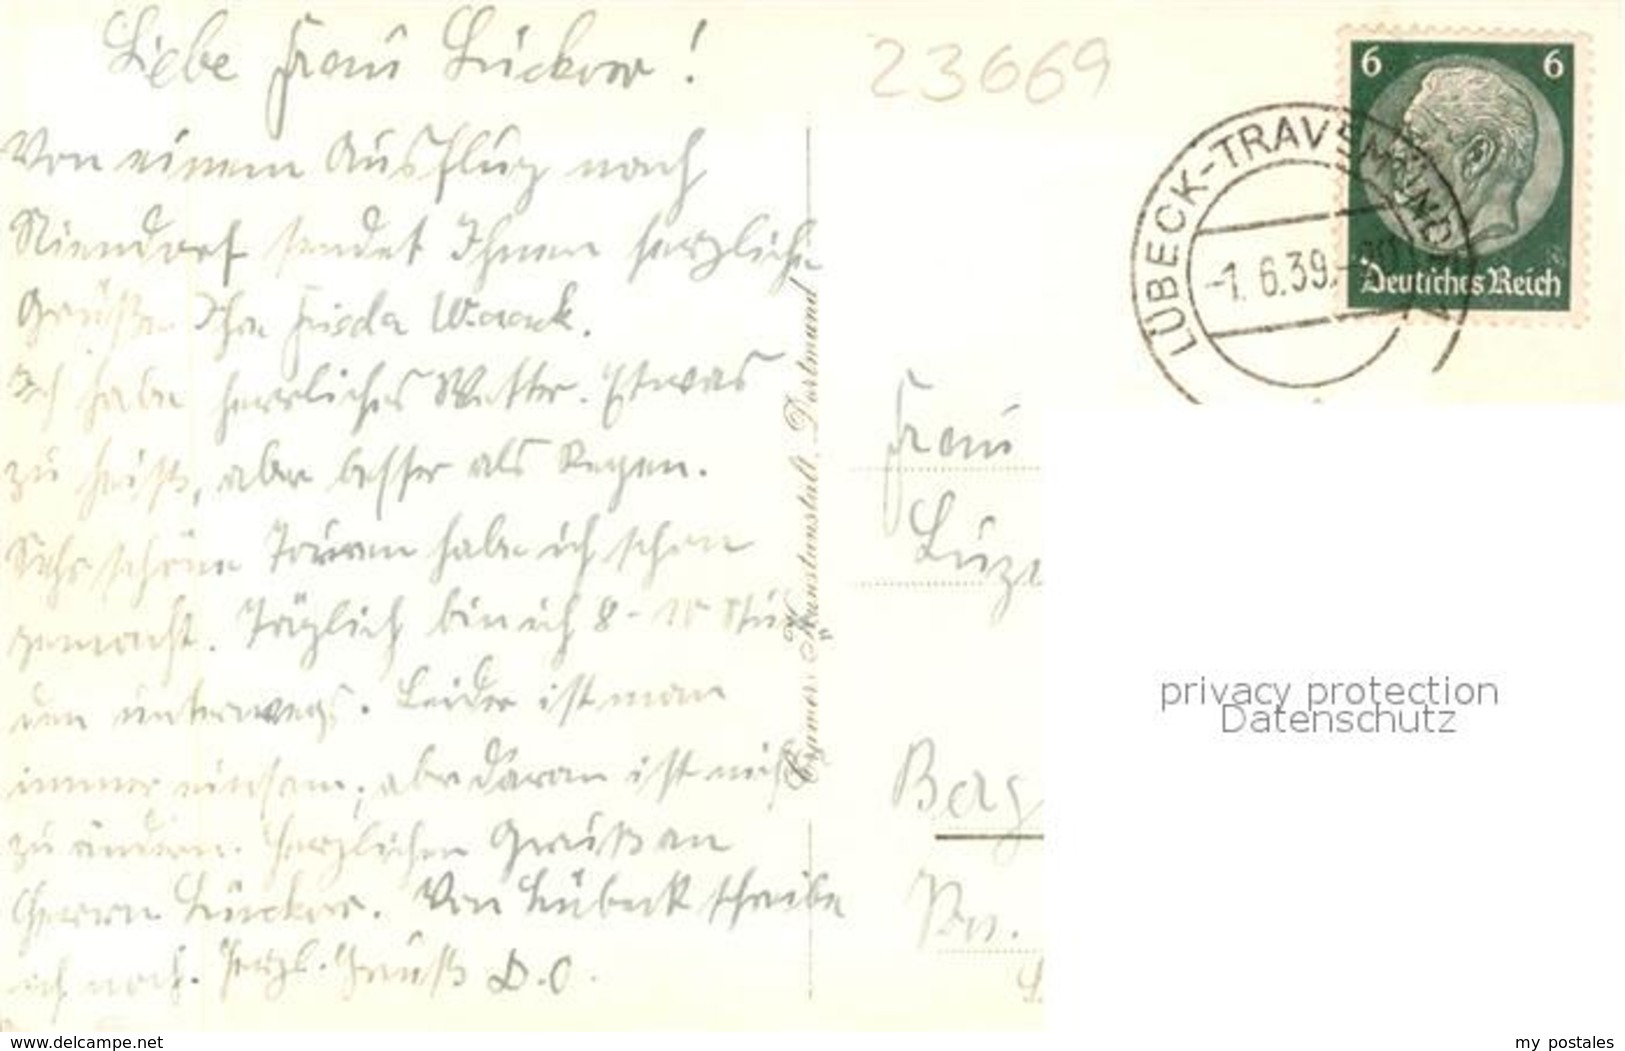 Liebe Frau Lückow!
Von einem Ausflug nach
Niendorf sendet Ihnen herzliche
Grüße Ihre Frieda
Ich habe herrliches Wetter. Etwas
zu heiß, aber besser als Regen.
Sehr schöne Touren habe ich schon
gemacht. Täglich bin ich 8-10 Stun
den unterwegs. Leider ist man
immer einsam, aber daran ist nichts
zu ändern. Herzlichen Gruß an
Herrn Lückow. Von Lübeck schreibe
ich noch. Herzl. Gruß D.O.
23669
LÜBECK-TRAVEMÜNDE
-1.6.39.-
6 6
Deutsches Reich
Cramers Kunstanstalt, Dortmund
Frau
Berg
privacy protection
Datenschutz
www.delcampe.net
my_postales